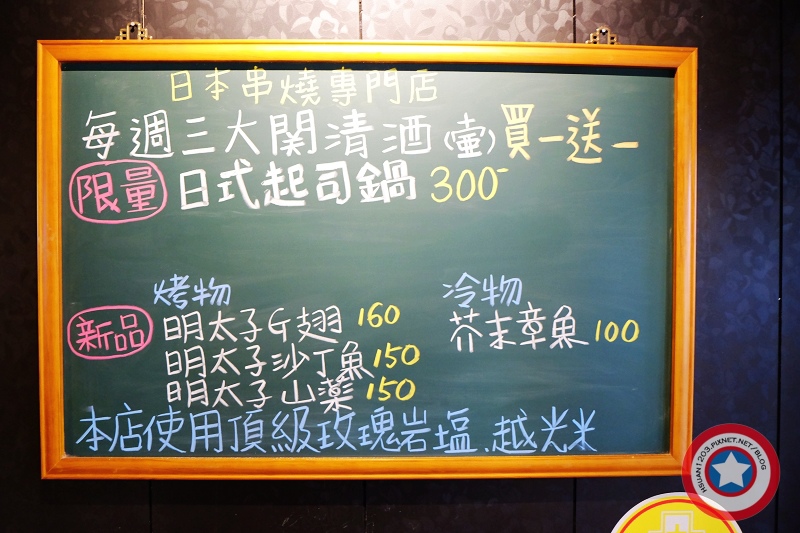 日本串燒專門店
每週三大関清酒(壺)買一送一
限量 日式起司鍋 300-
烤物
冷物
新品 明太子G翅 160
芥末章魚 100
明太子沙丁魚 150
明太子山藥 150
本店使用頂級玫瑰岩塩、越光米
HSUAN1203.PIXNET.NET/BLOG